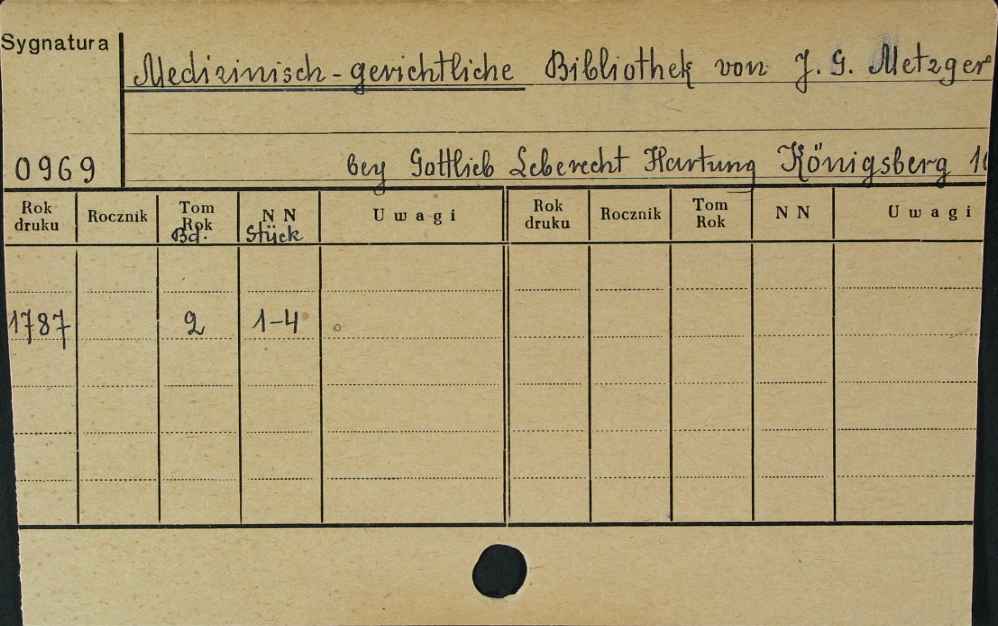 Sygnatura
Medizinisch-gerichtliche Bibliothek von J. G. Metzger
0969
bey Gottlieb Leberecht Hartung Königsberg
Rok druku Rocznik Tom Rok Bd. N N Stück Uwagi Rok druku Rocznik Tom Rok N N Uwagi
1787 2 1-4